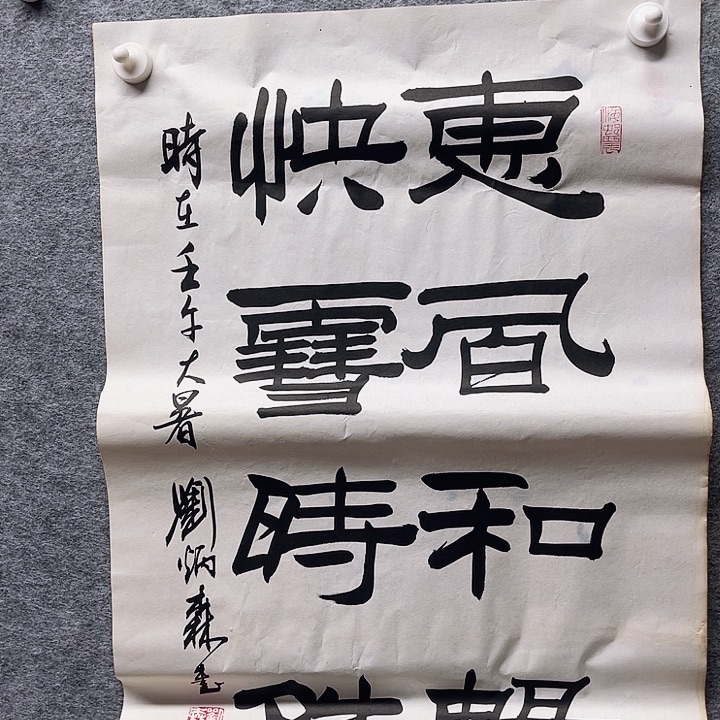 惠風和
快雪時
時在壬午大暑 劉炳森書